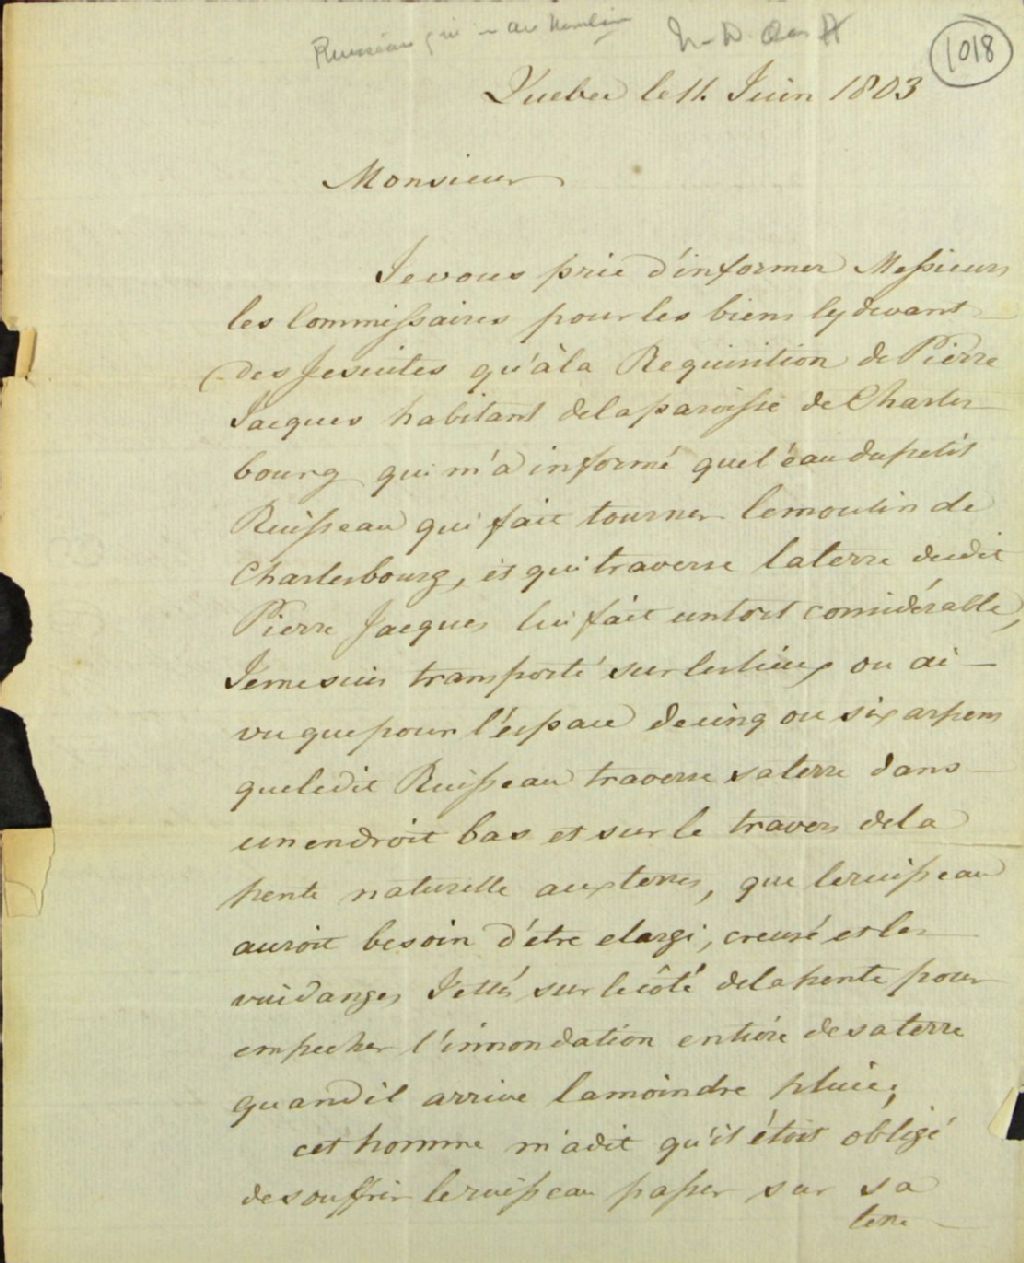 Ruisseau qui
N.D. des A
1018
Quebec le 11. Juin 1803
Monsieur
Je vous prie d'informer Messieurs
les Commissaires pour les biens cy devant
des Jesuites qu'à la Requisition de Pierre
Jacques habitant de la paroisse de Charles
bourg qui m'a informé que l'éau du petit
Ruisseau qui fait tourner le moulin de
Charlesbourg, et qui traverse la terre dudit
Pierre Jacques lui fait un tort considérable,
Je me suis transporté sur les lieux ou ai
vu que pour l'espace de cinq ou six arpens
que ledit Ruisseau traverse sa terre dans
un endroit bas et sur le travers de la
pente naturelle aux terres, que le ruisseau
auroit besoin d'être elargi, creusé et les
vuidanges Jettés sur le côté de la pente pour
empecher l'innondation entiére de sa terre
quand il arrive la moindre pluie;
cet homme m'a dit qu'il étoit obligé
de souffrir le ruisseau passer sur sa
terre